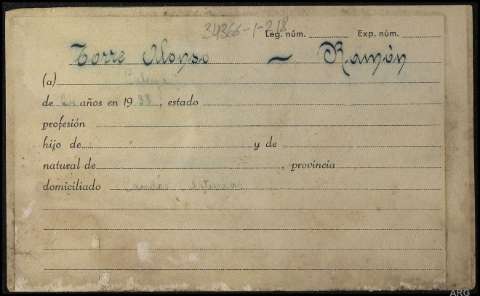 34366-1-218
Leg. núm. Exp. núm.
Torre Alonso — Ramón
(a)
de años en 19 38, estado
profesión
hijo de y de
natural de , provincia
domiciliado Candás Asturias
ARG